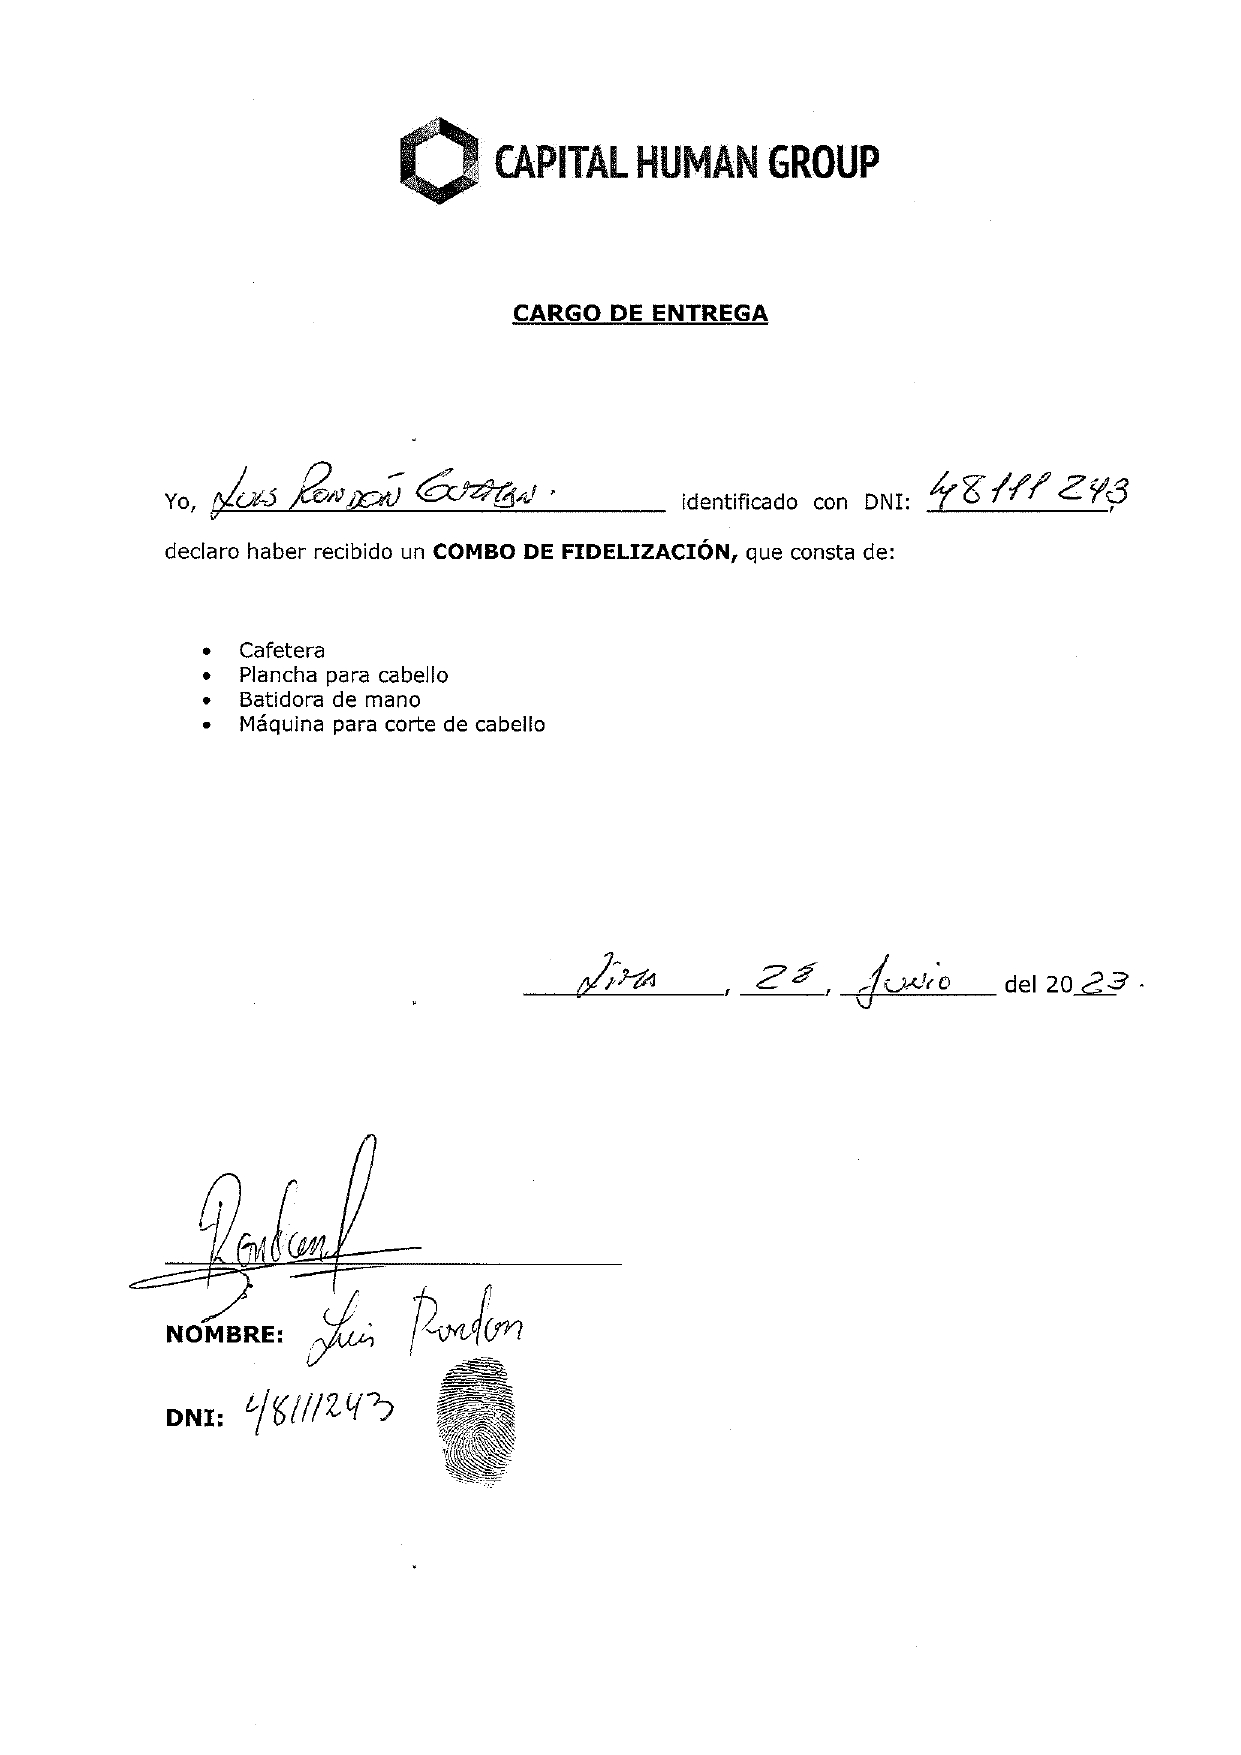 CAPITAL HUMAN GROUP
CARGO DE ENTREGA
Yo, Luis Rondón Guzman. identificado con DNI: 48111243,
declaro haber recibido un COMBO DE FIDELIZACIÓN, que consta de:
• Cafetera
• Plancha para cabello
• Batidora de mano
• Máquina para corte de cabello
Lima, 28, Junio del 2023.
Rondon
NOMBRE: Luis Rondon
DNI: 48111243